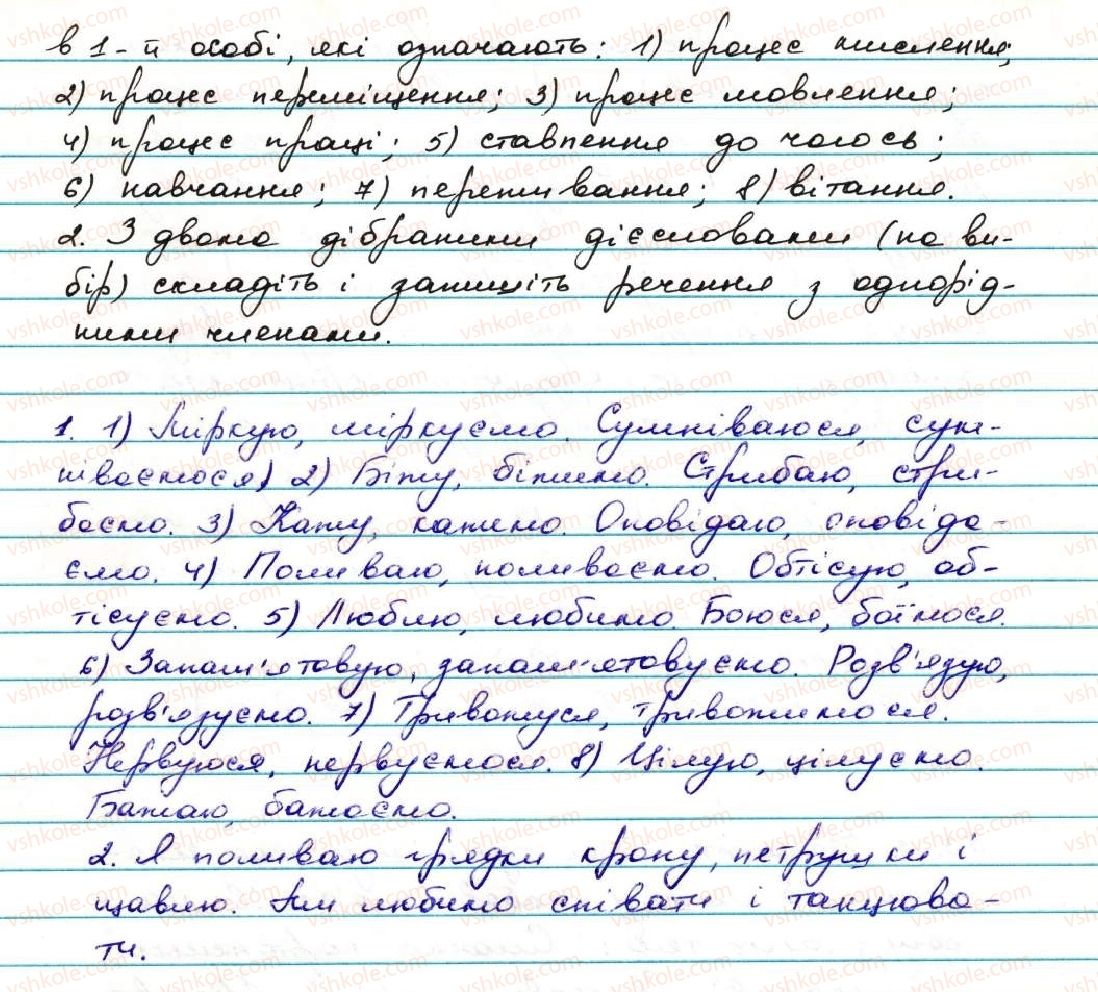 в 1-й особі, які означають: 1) процес мислення;
2) процес переміщення; 3) процес мовлення;
4) процес праці; 5) ставлення до чогось;
6) навчання; 7) переживання; 8) вітання.
2. З двома дібраними дієсловами (на ви-
бір) складіть і запишіть речення з однорід-
ними членами.
1. 1) Міркую, міркуємо. Сумніваюся, сум-
ніваємося) 2) Біжу, біжимо. Стрибаю, стри-
баємо. 3) Кажу, кажемо. Оповідаю, оповіда-
ємо. 4) Поливаю, поливаємо. Обтісую, об-
тісуємо. 5) Люблю, любимо. Боюся, боїмося.
6) Запам'ятовую, запам'ятовуємо. Розв'язую,
розв'язуємо. 7) Тривожуся, тривожимося.
Нервуюся, нервуємося. 8) Цілую, цілуємо.
Бажаю, бажаємо.
2. Я поливаю грядки кропу, петрушки і
щавлю. Ми любимо співати і танцюва-
ти.